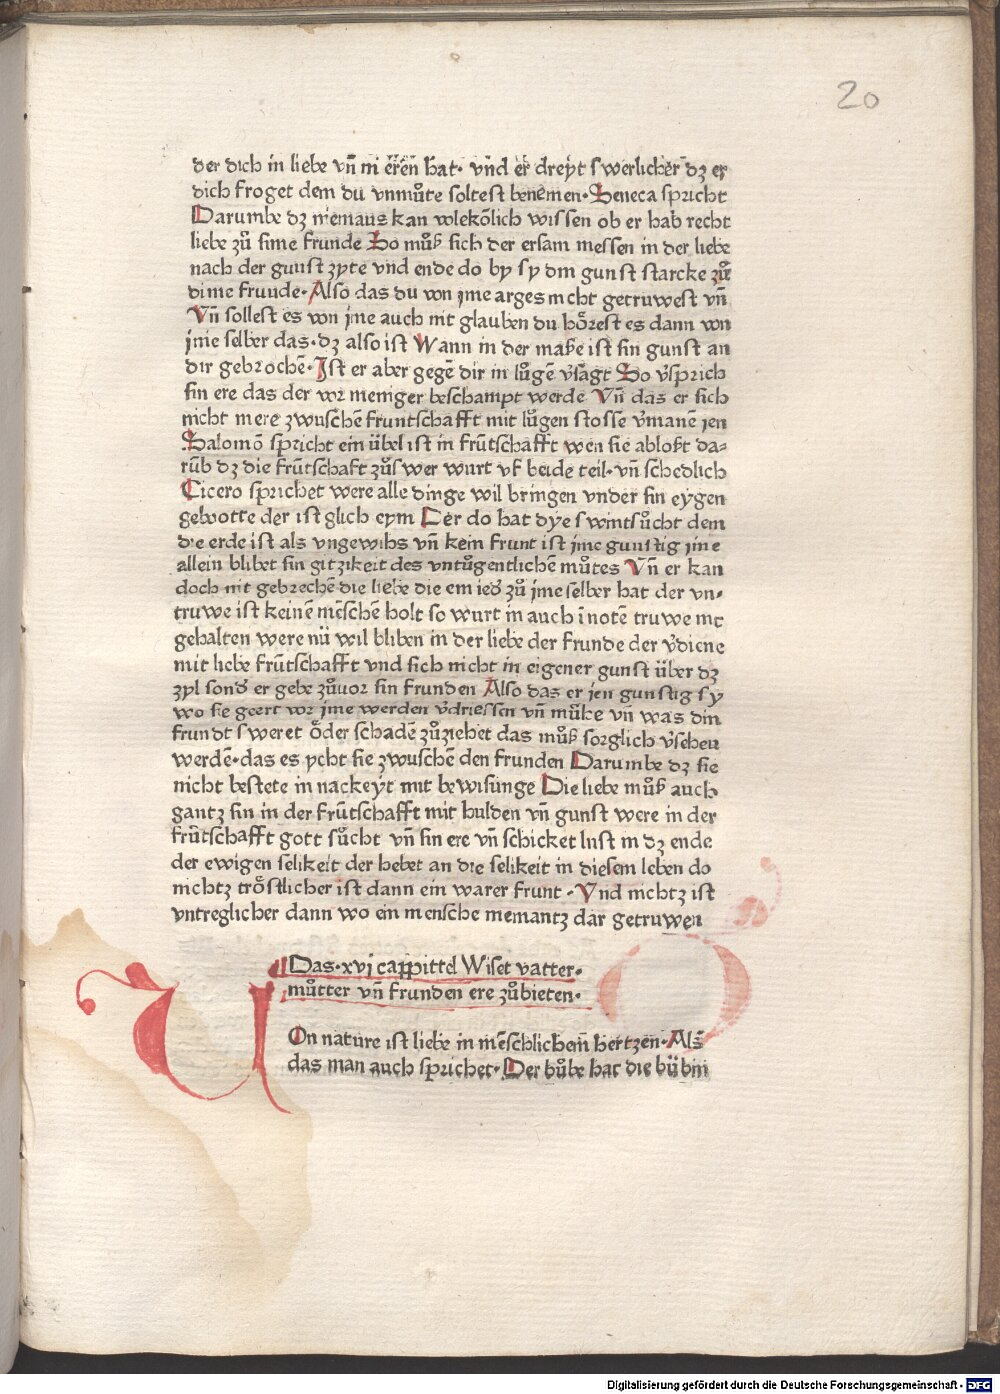 20
der dich in liebe vn̄ in eren hat· vnd er dreyt swerlicher dz er
dich froget dem du vnmuͦte soltest benemen· Seneca spricht
Darumbe dz niemans kan wlekoͤlich wissen ob er hab recht
liebe zuͦ sime frunde So muͦß sich der ersam messen in der liebe
nach der gunst zyte vnd ende do by sy din gunst starcke zuͦ
dime frunde· Also das du von jme arges nicht getruwest vn̄
Vn̄ sollest es von jme auch nit glauben du hoͤrest es dann von
jme selber das· dz also ist Wann in der maße ist sin gunst an
dir gebrochē· Ist er aber gegē dir in luͦgē v̄sagt So v̄sprich
sin ere das der vor meniger beschampt werde Vn̄ das er sich
nicht mere zwuschē fruntschafft mit luͦgen stosse v̄manē jen
Salomō spricht ein übel ist in frūtschafft wen sie abloßt da-
rūb dz die frūtschaft zuͦ swer wurt vf beide teil· vn̄ schedlich
Cicero sprichet were alle dinge wil bringen vnder sin eygen
gebotte der ist glich eym Der do hat dye swintsuͦcht dem
die erde ist als vngewihs vn̄ kein frunt ist jme gunstig jme
allein blibet sin gitzikeit des vntuͦgentlichē muͦtes Vn̄ er kan
doch nit gebrechē die liebe die em ied̄ zuͦ jme selber hat der vn-
truwe ist keinē mēschē holt so wurt in auch ī notē truwe nit
gehalten were nū wil bliben in der liebe der frunde der v̄diene
mit liebe frūtschafft vnd sich nicht in eigener gunst über dz
zyl sond̄ er gebe zuͦuor sin frunden Also das er jen gunstig sy
wo sie geert vor jme werden v̄driessen vn̄ muͦhe vn̄ was din
frundt sweret oͤder schadē zuͦziehet das muͦß sorglich v̄sehen
werdē· das es ycht sie zwuschē den frunden Darumbe dz sie
nicht bestete in nackeyt mit bewisunge Die liebe muͦß auch
gantz sin in der frūtschafft mit hulden vn̄ gunst were in der
frūtschafft gott suͦcht vn̄ sin ere vn̄ schicket lust in dz ende
der ewigen selikeit der hebet an die selikeit in diesem leben do
nichtz troͤstlicher ist dann ein warer frunt· Vnd nichtz ist
vntreglicher dann wo ein mensche niemantz dar getruwen
Das· xvj cappittel Wiset vatter·
muͦtter vn̄ frunden ere zuͦbieten·
VOn nature ist liebe in mēschlichem̄ hertzen· Als
das man auch sprichet· Der buͦbe hat die bübin
Digitalisierung gefördert durch die Deutsche Forschungsgemeinschaft - DFG